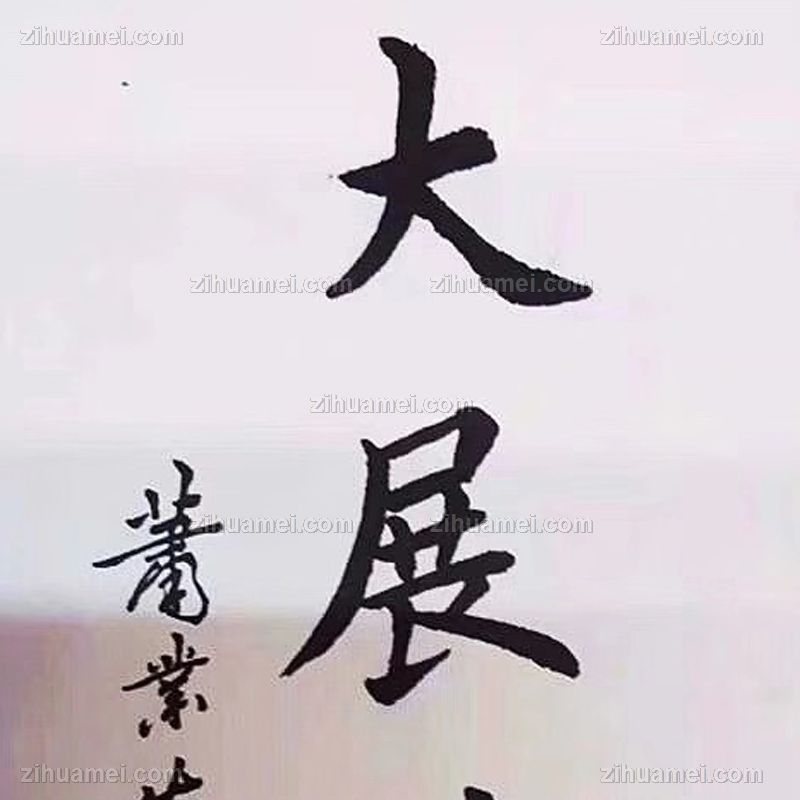 大展
萧業
zihuamei.com zihuamei.com
zihuamei.com zihuamei.com
zihuamei.com
zihuamei.com zihuamei.com
zihuamei.com zihuamei.com